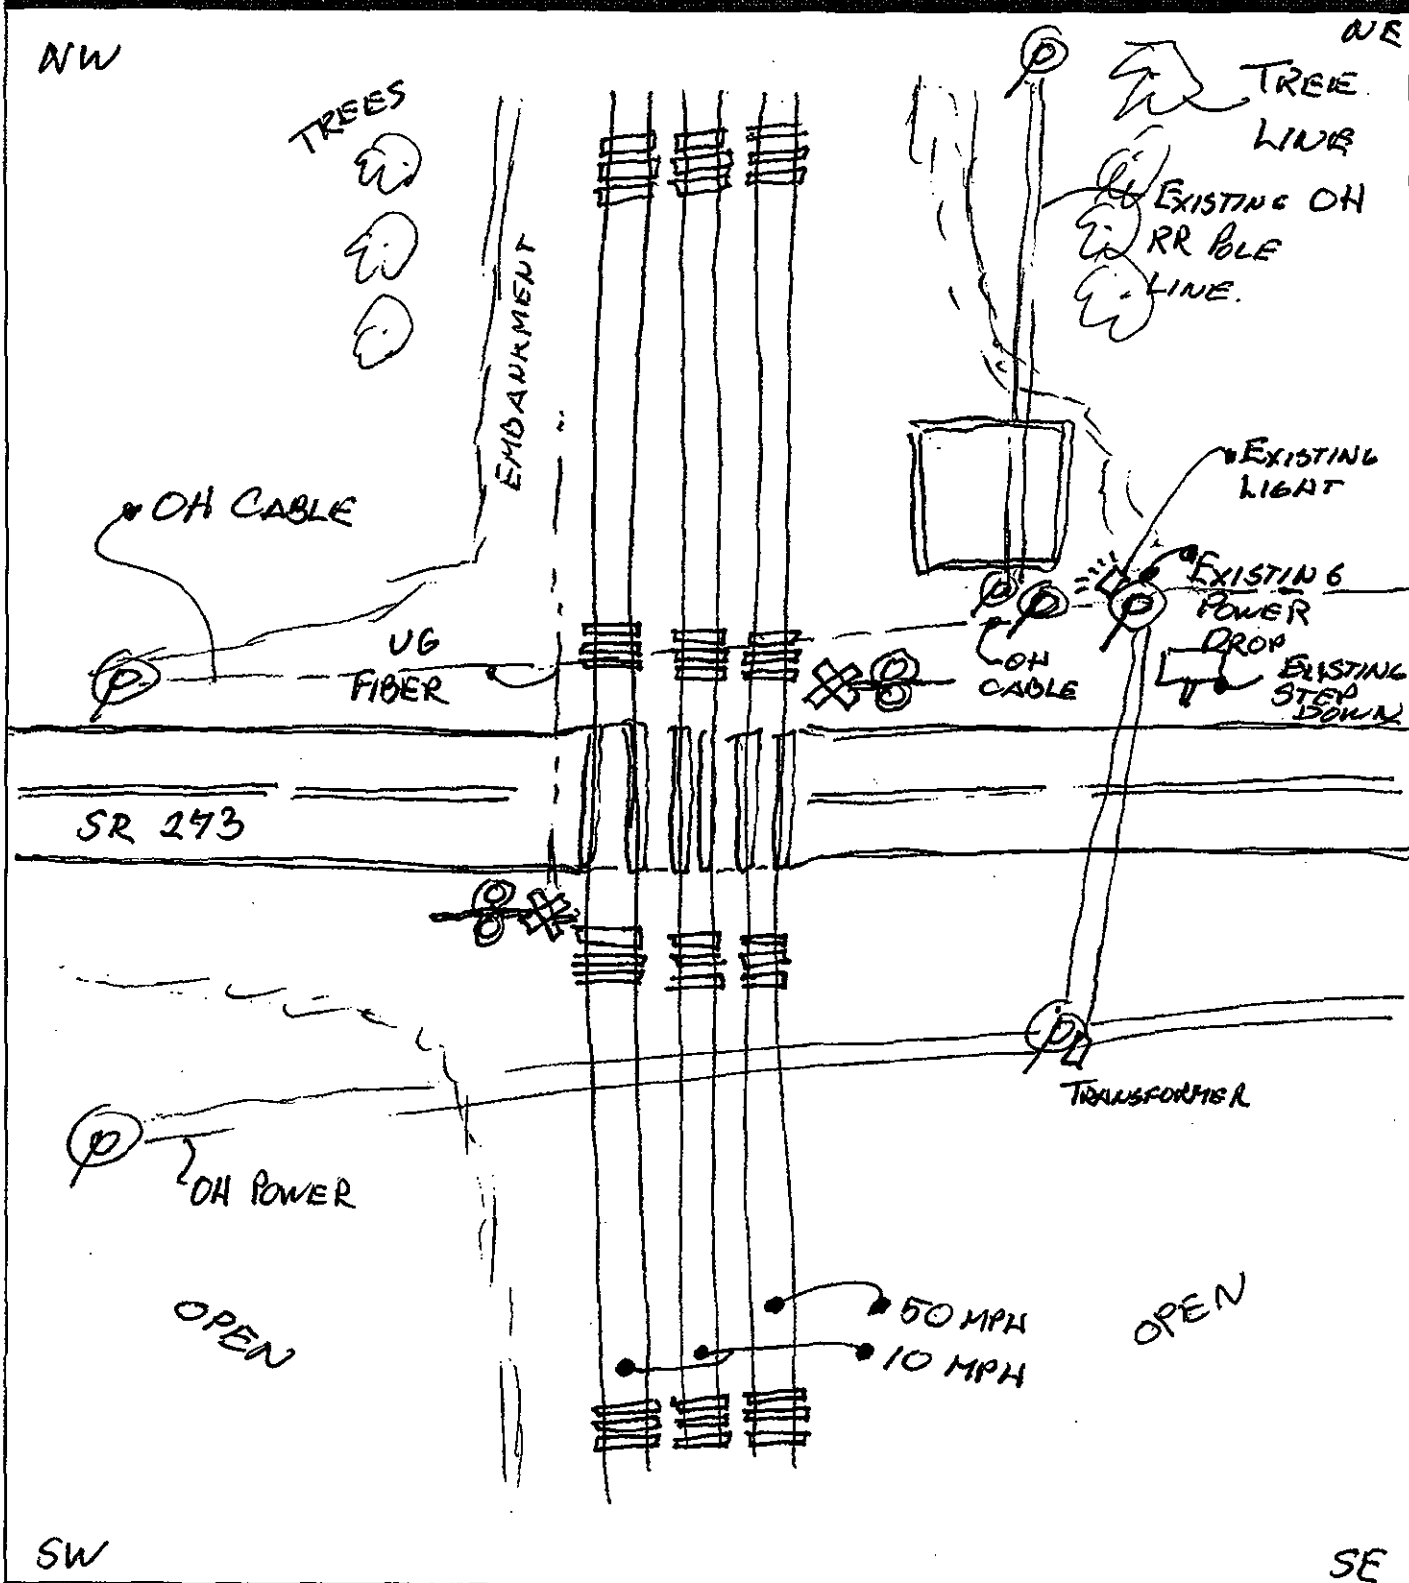 NW
NE
TREES
TREE
LINE
EXISTING OH
RR POLE
LINE.
EMBANKMENT
EXISTING
LIGHT
OH CABLE
EXISTING
POWER
DROP
UG
FIBER
OH
CABLE
EXISTING
STEP
DOWN
SR 273
TRANSFORMER
OH POWER
OPEN
50 MPH
10 MPH
OPEN
SW
SE